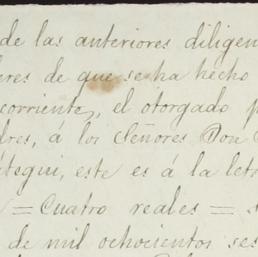 de las anteriores diligen
eres de que se ha hecho
corriente, el otorgado p
dres, á los Señores Don
tegui, este es á la let
= Cuatro reales =
de mil ochocientos ses